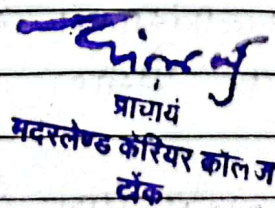 प्राचार्य
मदरलेण्ड केरियर कॉलेज
टोंक